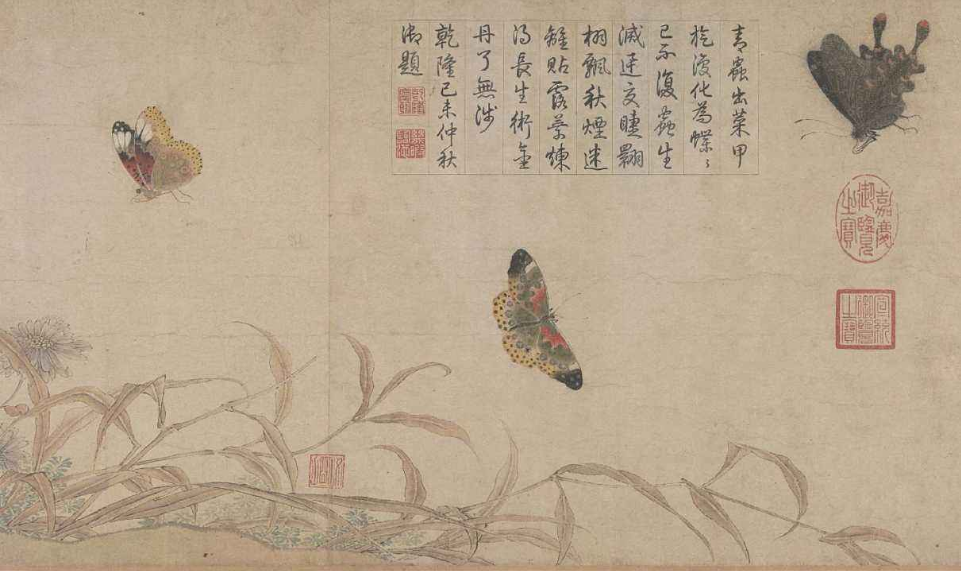 青蟲出菜甲
旋復化為蝶〻
已不復蟲生
滅速交睫翾
栩飄秋煙迷
離貼露葉煉
得長生術金
丹了無涉
乾隆己未仲秋
御題
嘉慶御覽之寶
宣統御覽之寶